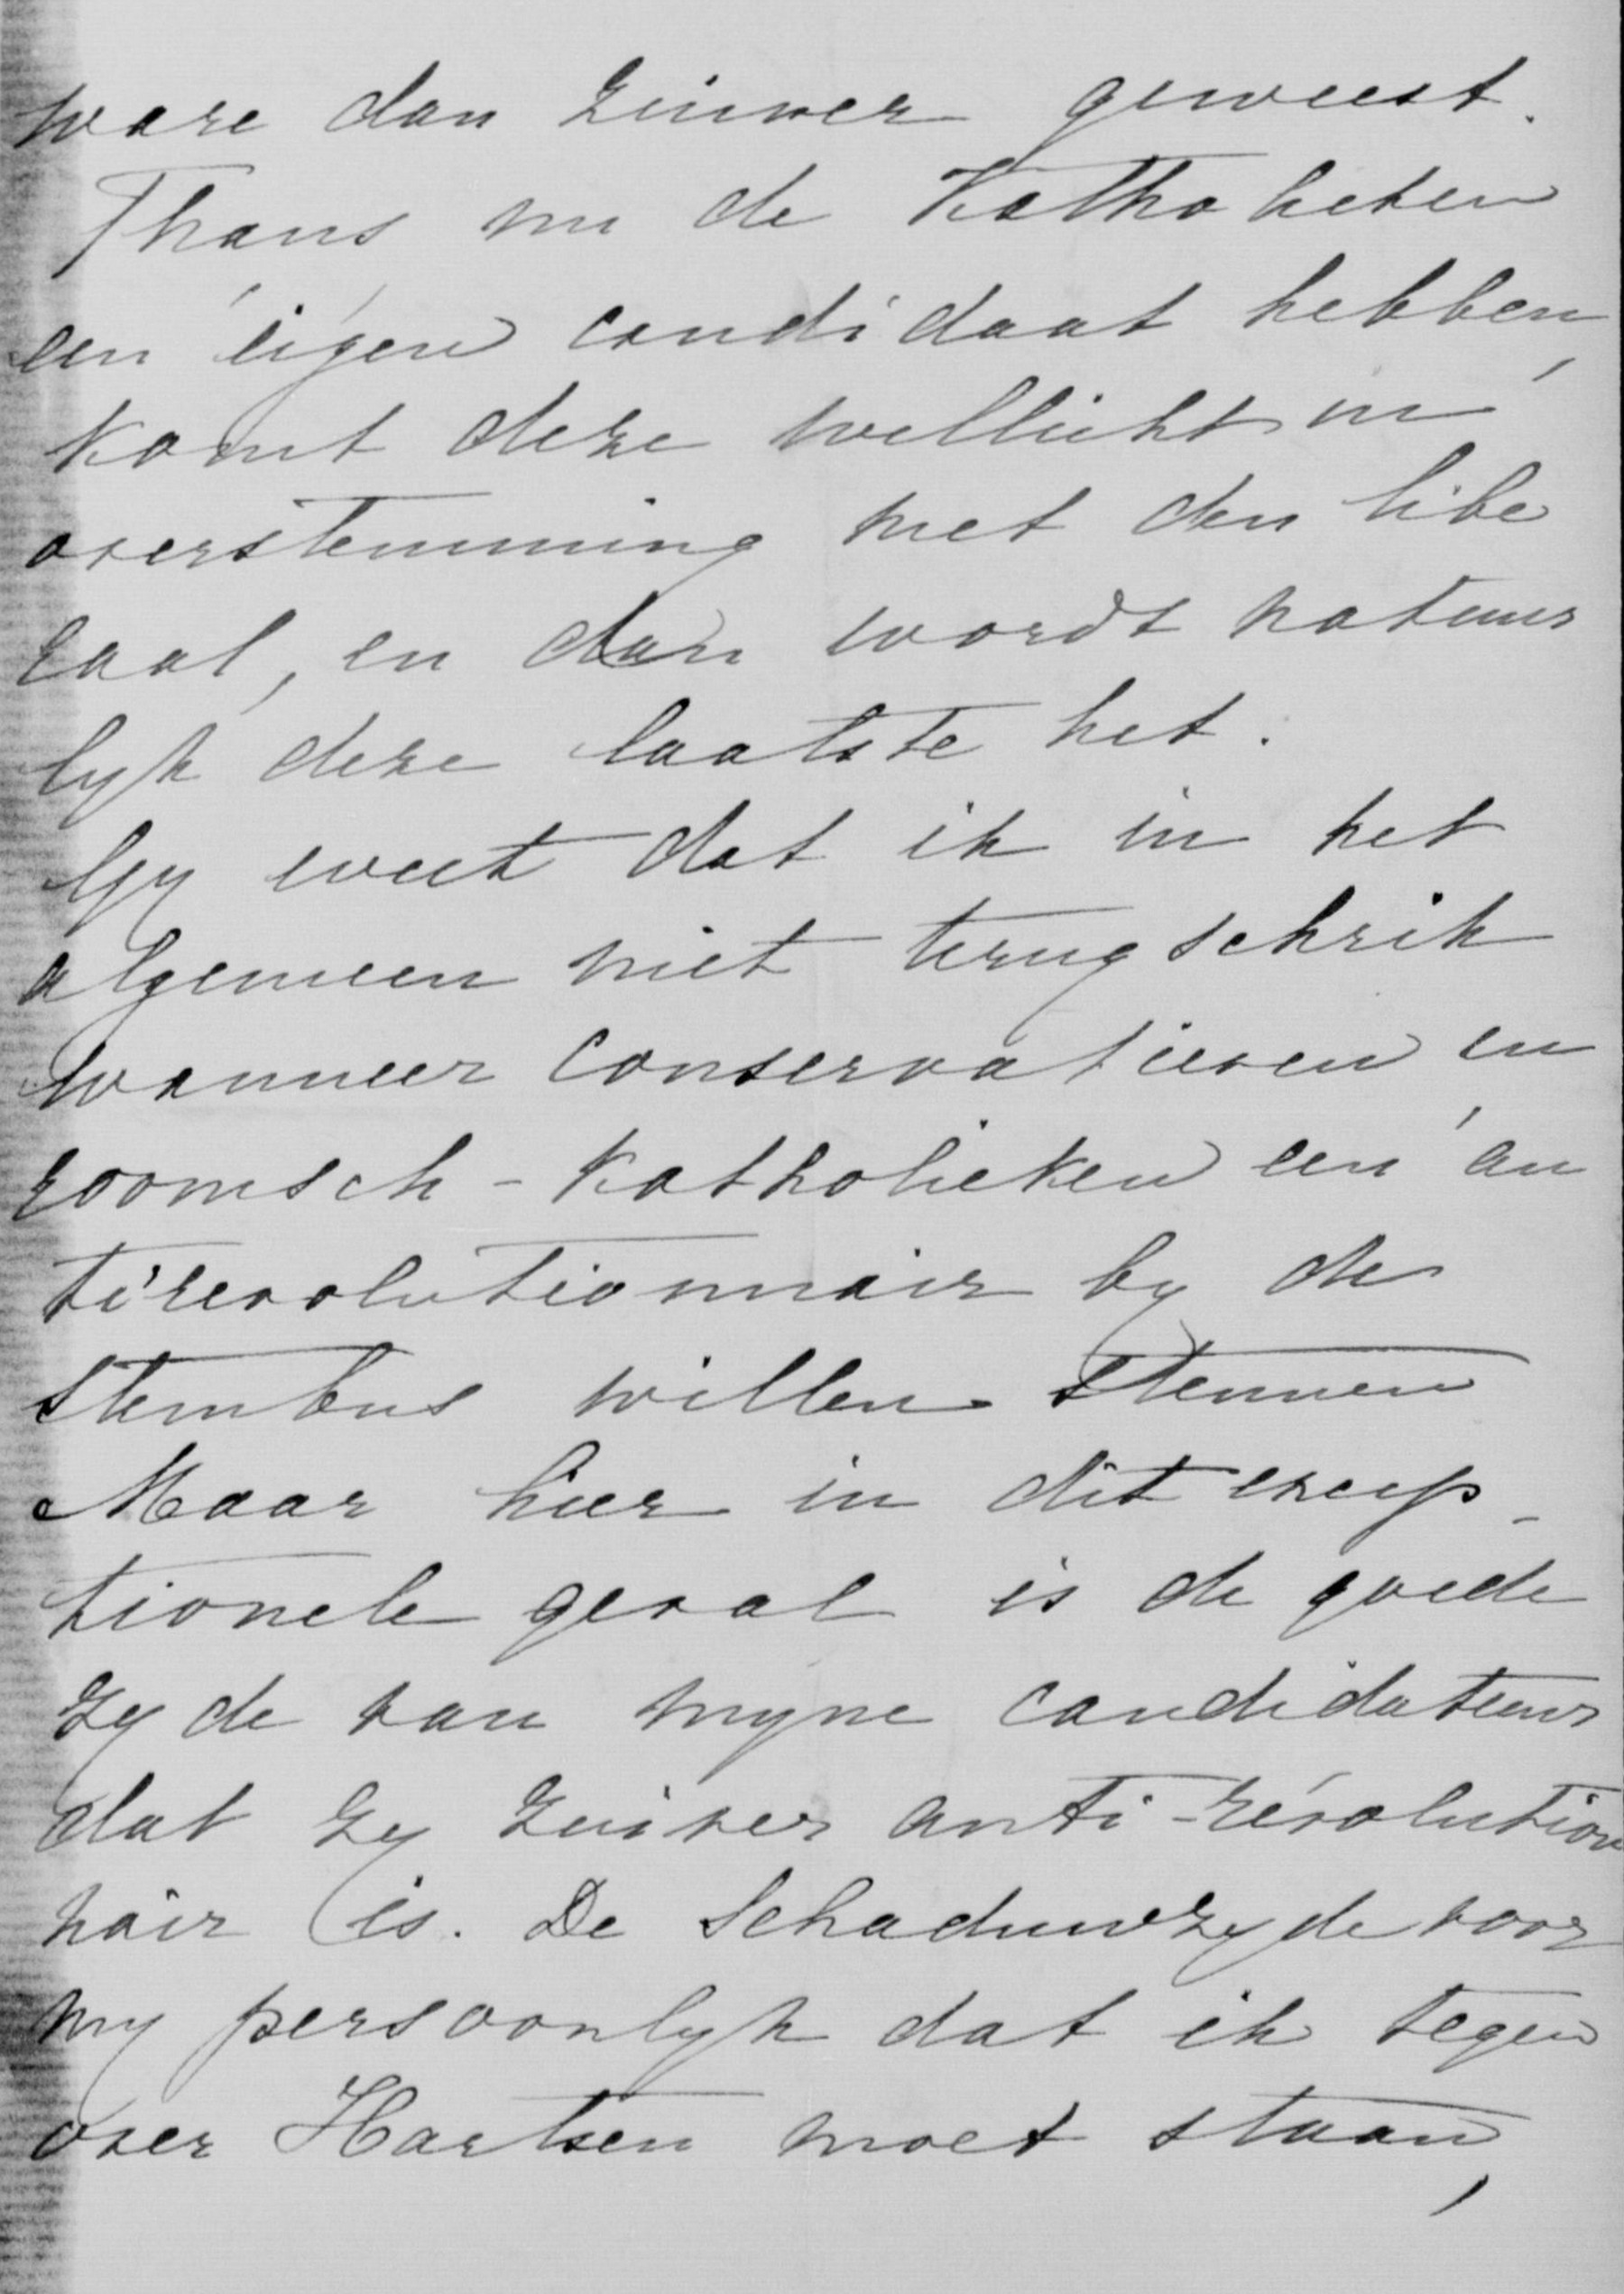 ware dan zuiver geweest.
Thans nu de Katholieken
een eigen candidaat hebben,
komt deze wellicht in
overstemming met den libe
raal, en dan wordt natuur
lyk deze laatste het.
Gy weet dat ik in het
algemeen niet terugschrik
wanneer conservatieven en
roomsch-Katholieken een an
tirevolutionnair by de
stembus willen steunen
Maar hier in dit excep-
tionele geval is de goede
zyde van myne candidatuur
dat zy zuiver anti-révolution
nair is. De schaduwzyde voor
my persoonlyk dat ik tegen
over Hartsen moet staan,